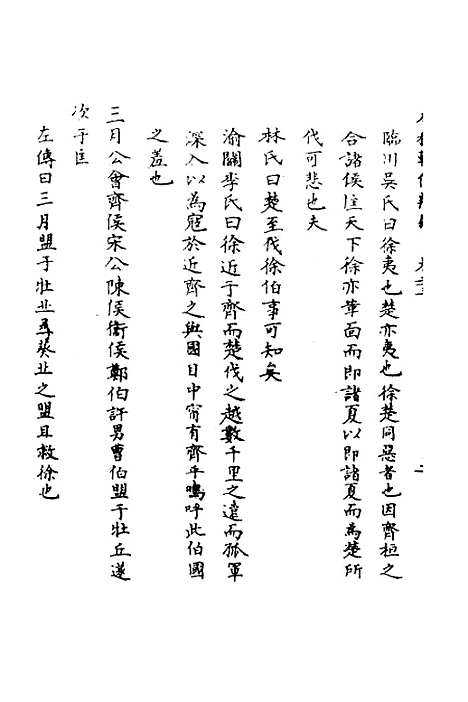 臨川吳氏曰徐夷也楚亦夷也徐楚同惡者也因齊桓之
合諸侯匡天下徐亦革面而即諸夏以即諸夏而為楚所
伐可悲也夫
林氏曰楚至伐徐伯事可知矣
渝關李氏曰徐近于齊而楚伐之越數千里之遠而孤軍
深入以為寇於近齊之與國目中甯有齊乎嗚呼此伯國
之羞也
三月公會齊侯宋公陳侯衛侯鄭伯許男曹伯盟于壯丘遂
次于匡
左傳曰三月盟于壯丘尋葵丘之盟且救徐也